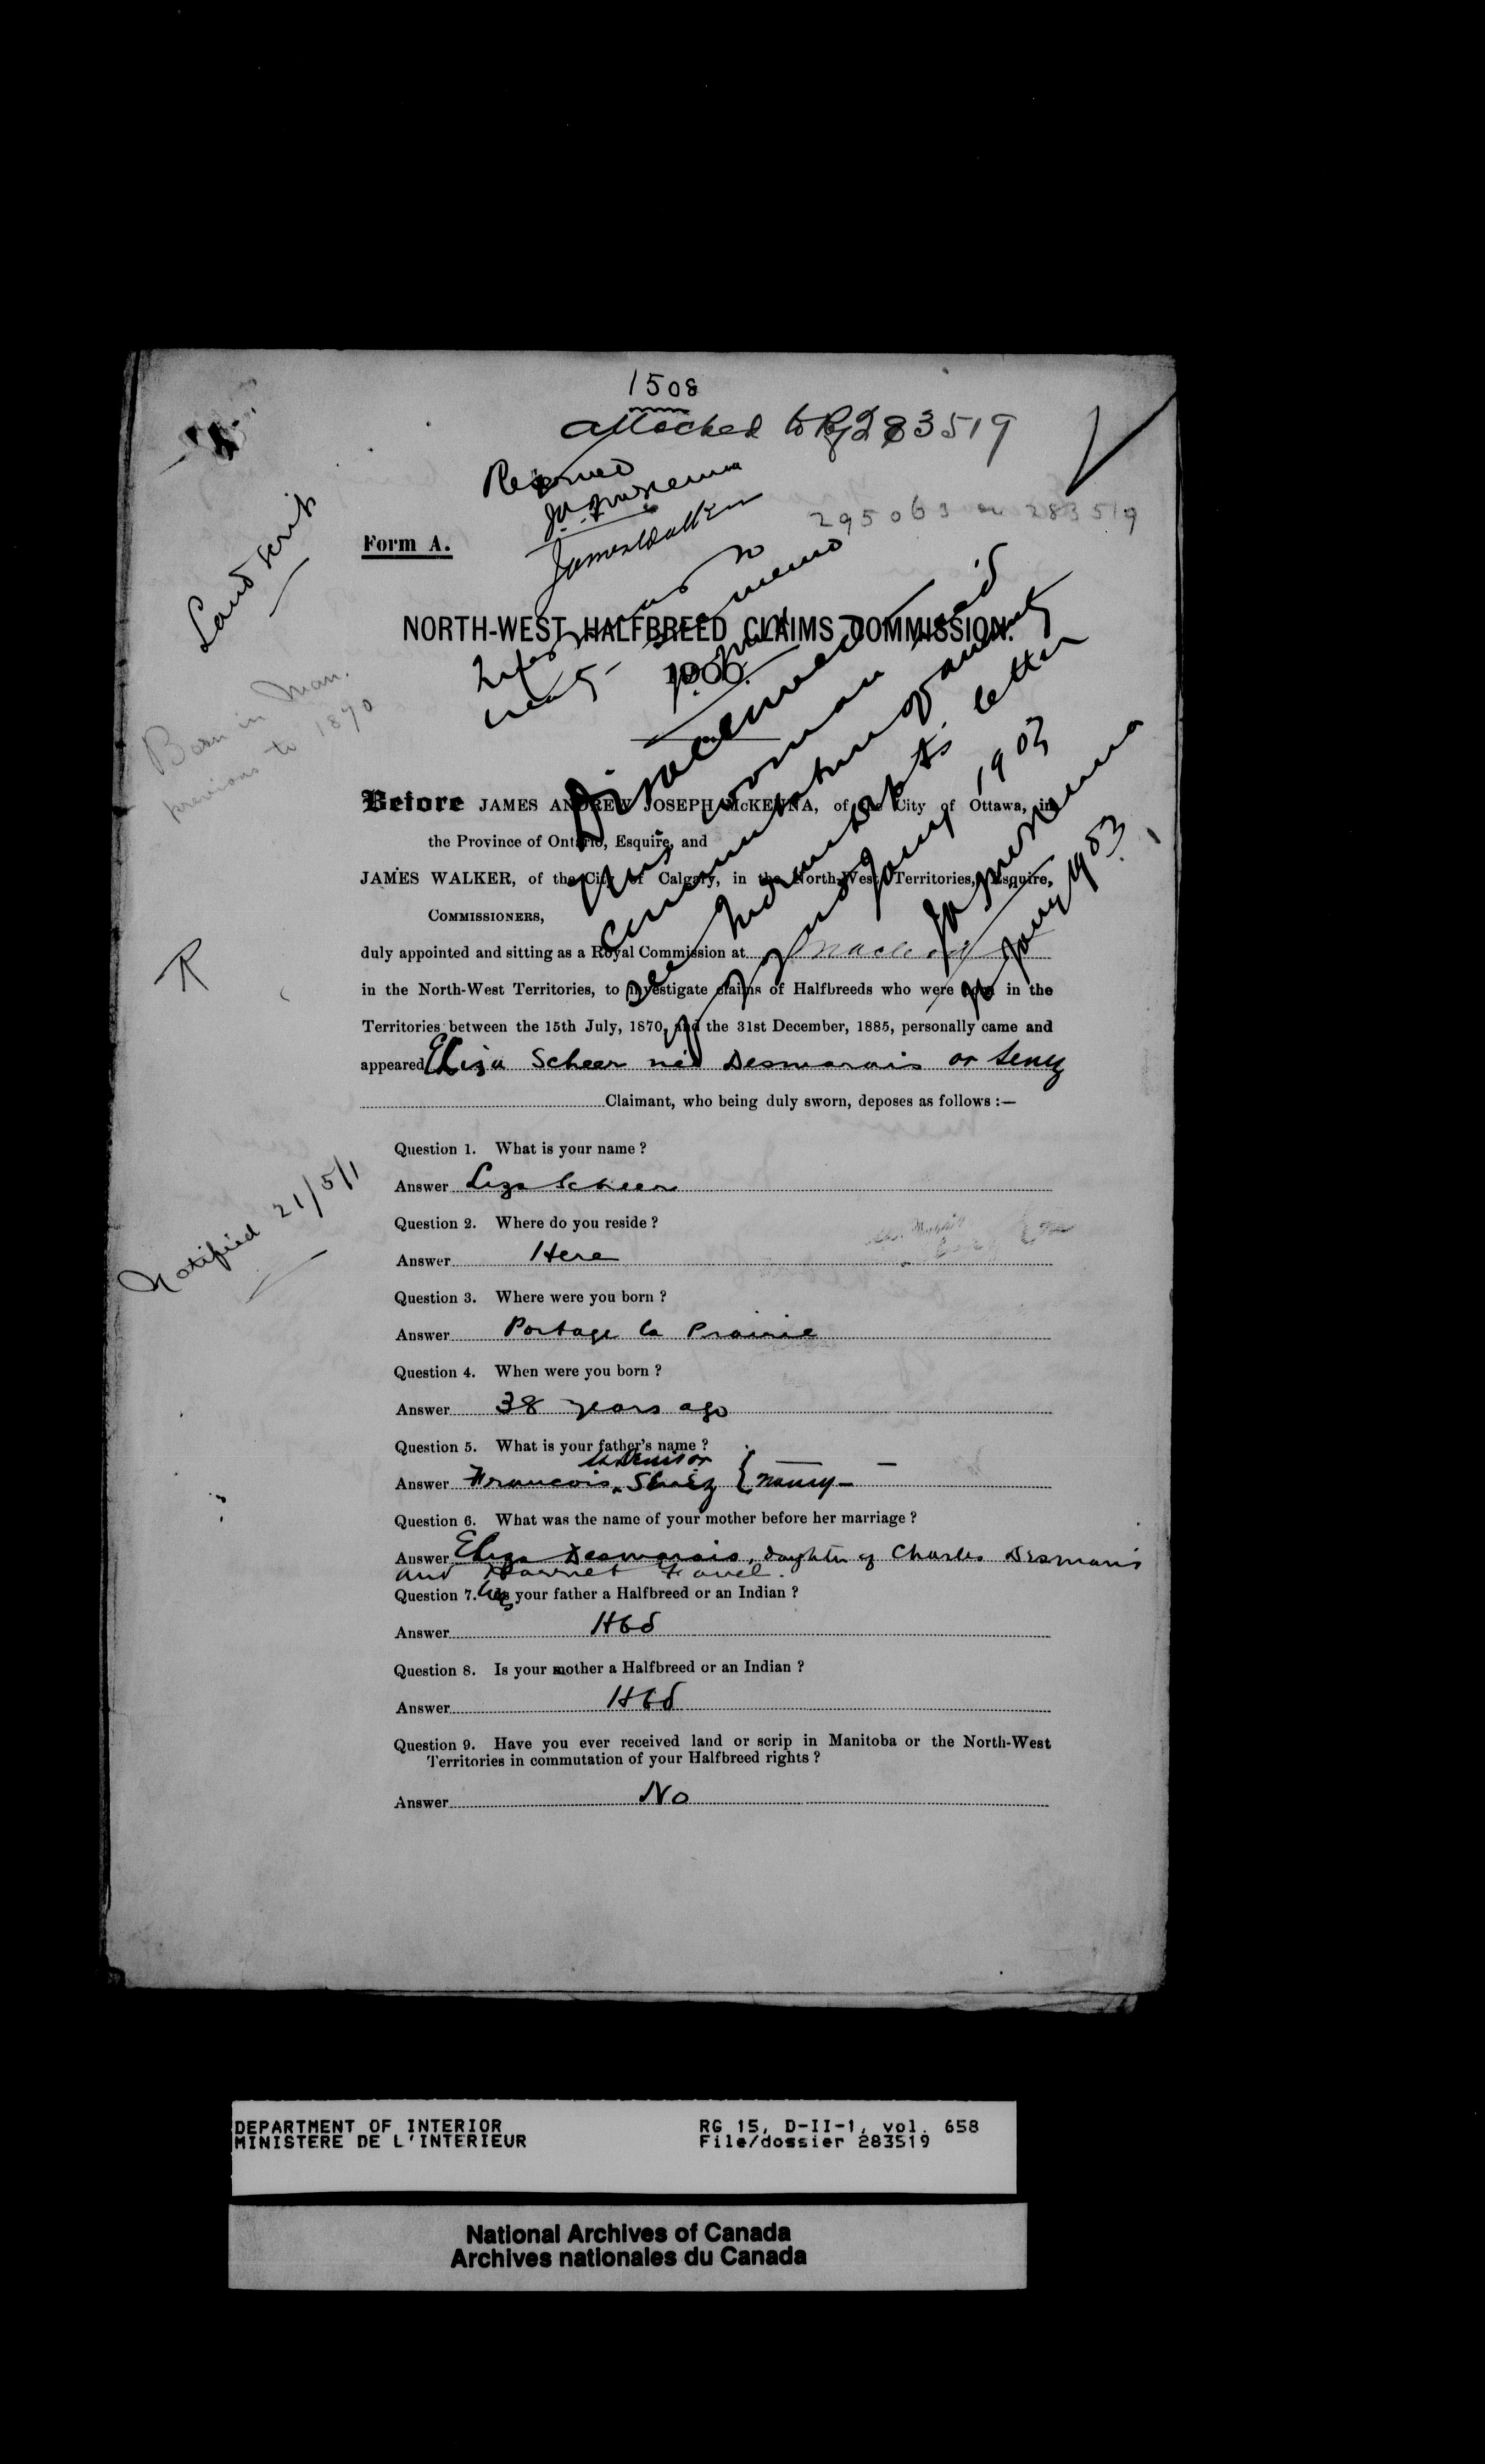 1508
attached to Rg 283519
Reserved
J.A.J. McKenna
James Walker
295063 on 283519
Land scrip
Form A.
NORTH-WEST HALFBREED CLAIMS COMMISSION.
1900.
treaty - see memo
Born in Man.
previous to 1870
Disallowed
This woman
commutation of annuity
see Indian Dept's letter
of Jany 1903
J.A.J. McKenna
Jany 1903
Before JAMES ANDREW JOSEPH McKENNA, of the City of Ottawa, in
the Province of Ontario, Esquire, and
JAMES WALKER, of the City of Calgary, in the North-West Territories, Esquire,
COMMISSIONERS,
duly appointed and sitting as a Royal Commission at Macleod
in the North-West Territories, to investigate claims of Halfbreeds who were born in the
Territories between the 15th July, 1870, and the 31st December, 1885, personally came and
appeared Eliza Scheer née Desmarais or Senez
Claimant, who being duly sworn, deposes as follows :—
Question 1. What is your name ?
Answer Liza Scheer
Notified 21/5/1
Question 2. Where do you reside ?
Answer Here
Question 3. Where were you born ?
Answer Portage la Prairie
Question 4. When were you born ?
Answer 38 years ago
Question 5. What is your father's name ?
Answer Francois St. Denis or Senez
Question 6. What was the name of your mother before her marriage ?
Answer Eliza Desmarais, daughter of Charles Desmarais
and Harriet Favel.
Question 7. Was your father a Halfbreed or an Indian ?
Answer Hbd
Question 8. Is your mother a Halfbreed or an Indian ?
Answer Hbd
Question 9. Have you ever received land or scrip in Manitoba or the North-West
Territories in commutation of your Halfbreed rights ?
Answer No
DEPARTMENT OF INTERIOR
MINISTERE DE L'INTERIEUR
RG 15, D-II-1, vol. 658
File/dossier 283519
National Archives of Canada
Archives nationales du Canada